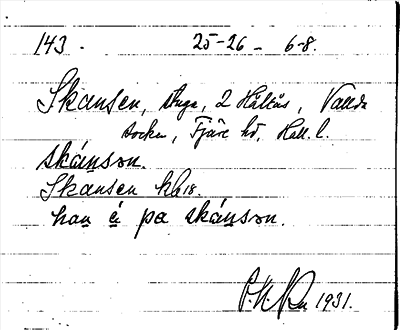 143. 25-26 - 6-8.
Skansen, stuga, 2 Hållsås, Vallda
socken, Fjäre hd, Hall. l.
skánsǝn.
Skansen kb 18.
han ä́ pa skánsǝn.
1931.